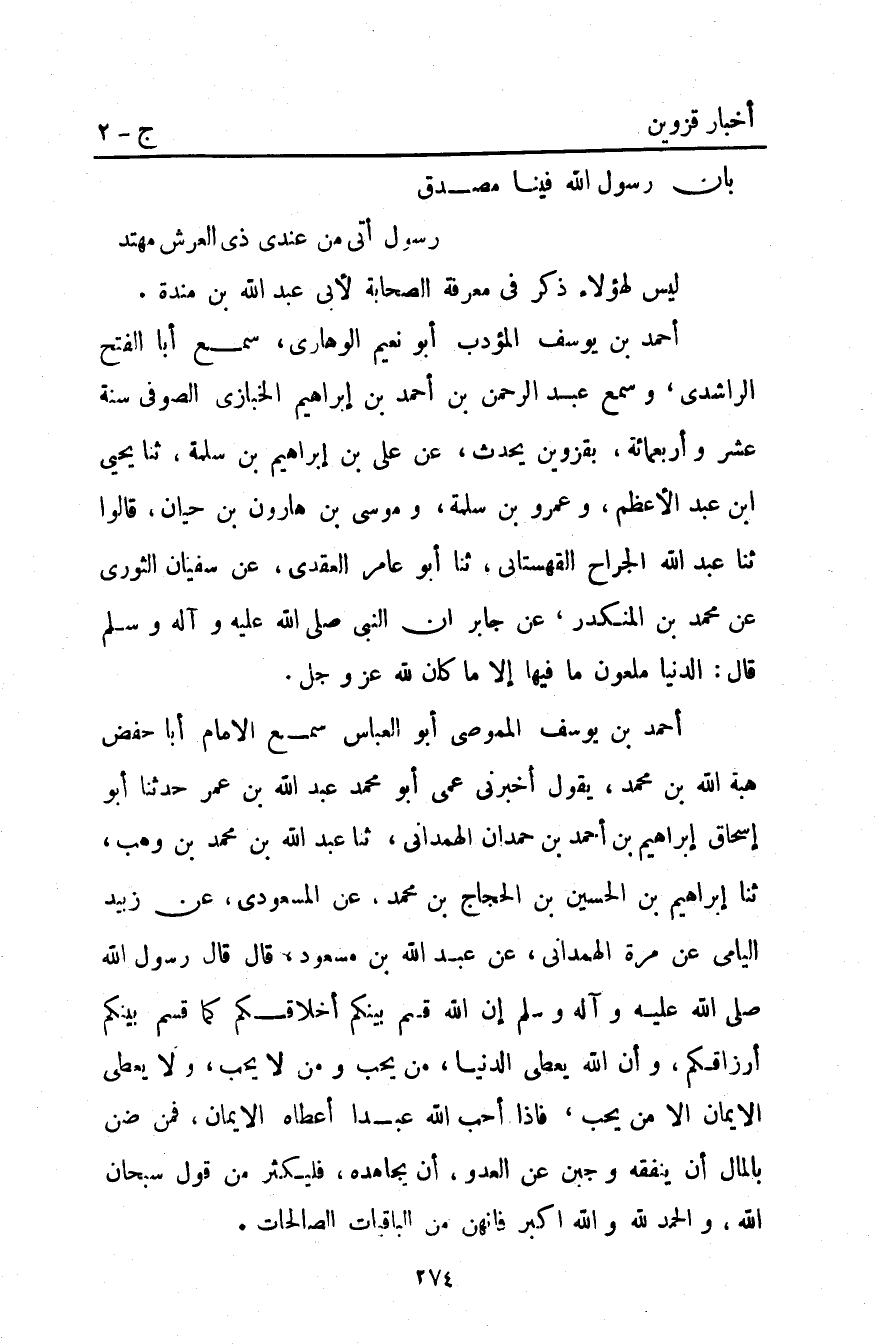 أخبار قزوين ج - ٢
بان رسول الله فينا مصدق
رسول أتى من عندى ذى العرش مهتد
ليس لهؤلاء ذكر فى معرفة الصحابة لأبى عبد الله بن مندة .
أحمد بن يوسف المؤدب أبو نعيم الوهارى، سمع أبا الفتح
الراشدى، و سمع عبد الرحمن بن أحمد بن إبراهيم الخبازى الصوفى سنة
عشر و أربعمائة، بقزوين يحدث، عن على بن إبراهيم بن سلمة، ثنا يحيى
ابن عبد الأعظم، و عمرو بن سلمة، و موسى بن هارون بن حيان، قالوا
ثنا عبد الله الجراح القهستانى، ثنا أبو عامر العقدى، عن سفيان الثورى
عن محمد بن المنكدر، عن جابر ان النبى صلى الله عليه و آله و سلم
قال: الدنيا ملعون ما فيها إلا ما كان لله عز و جل .
أحمد بن يوسف الموصى أبو العباس سمع الامام أبا حفض
هبة الله بن محمد، يقول أخبرنى عمى أبو محمد عبد الله بن عمر حدثنا أبو
إسحاق إبراهيم بن أحمد بن حمدان الهمدانى، ثنا عبد الله بن محمد بن وهب،
ثنا إبراهيم بن الحسين بن الحجاج بن محمد، عن المسعودى، عن زبيد
اليامى عن مرة الهمدانى، عن عبد الله بن مسعود، قال قال رسول الله
صلى الله عليه و آله و سلم إن الله قسم بينكم أخلاقكم كما قسم بينكم
أرزاقكم، و أن الله يعطى الدنيا، من يحب و من لا يحب، و لا يعطى
الايمان الا من يحب، فاذا أحب الله عبدا أعطاه الايمان، فمن ضن
بالمال أن ينفقه و جبن عن العدو، أن يجاهده، فليكثر من قول سبحان
الله، و الحمد لله و الله اكبر فانهن من الباقيات الصالحات .
٢٧٤